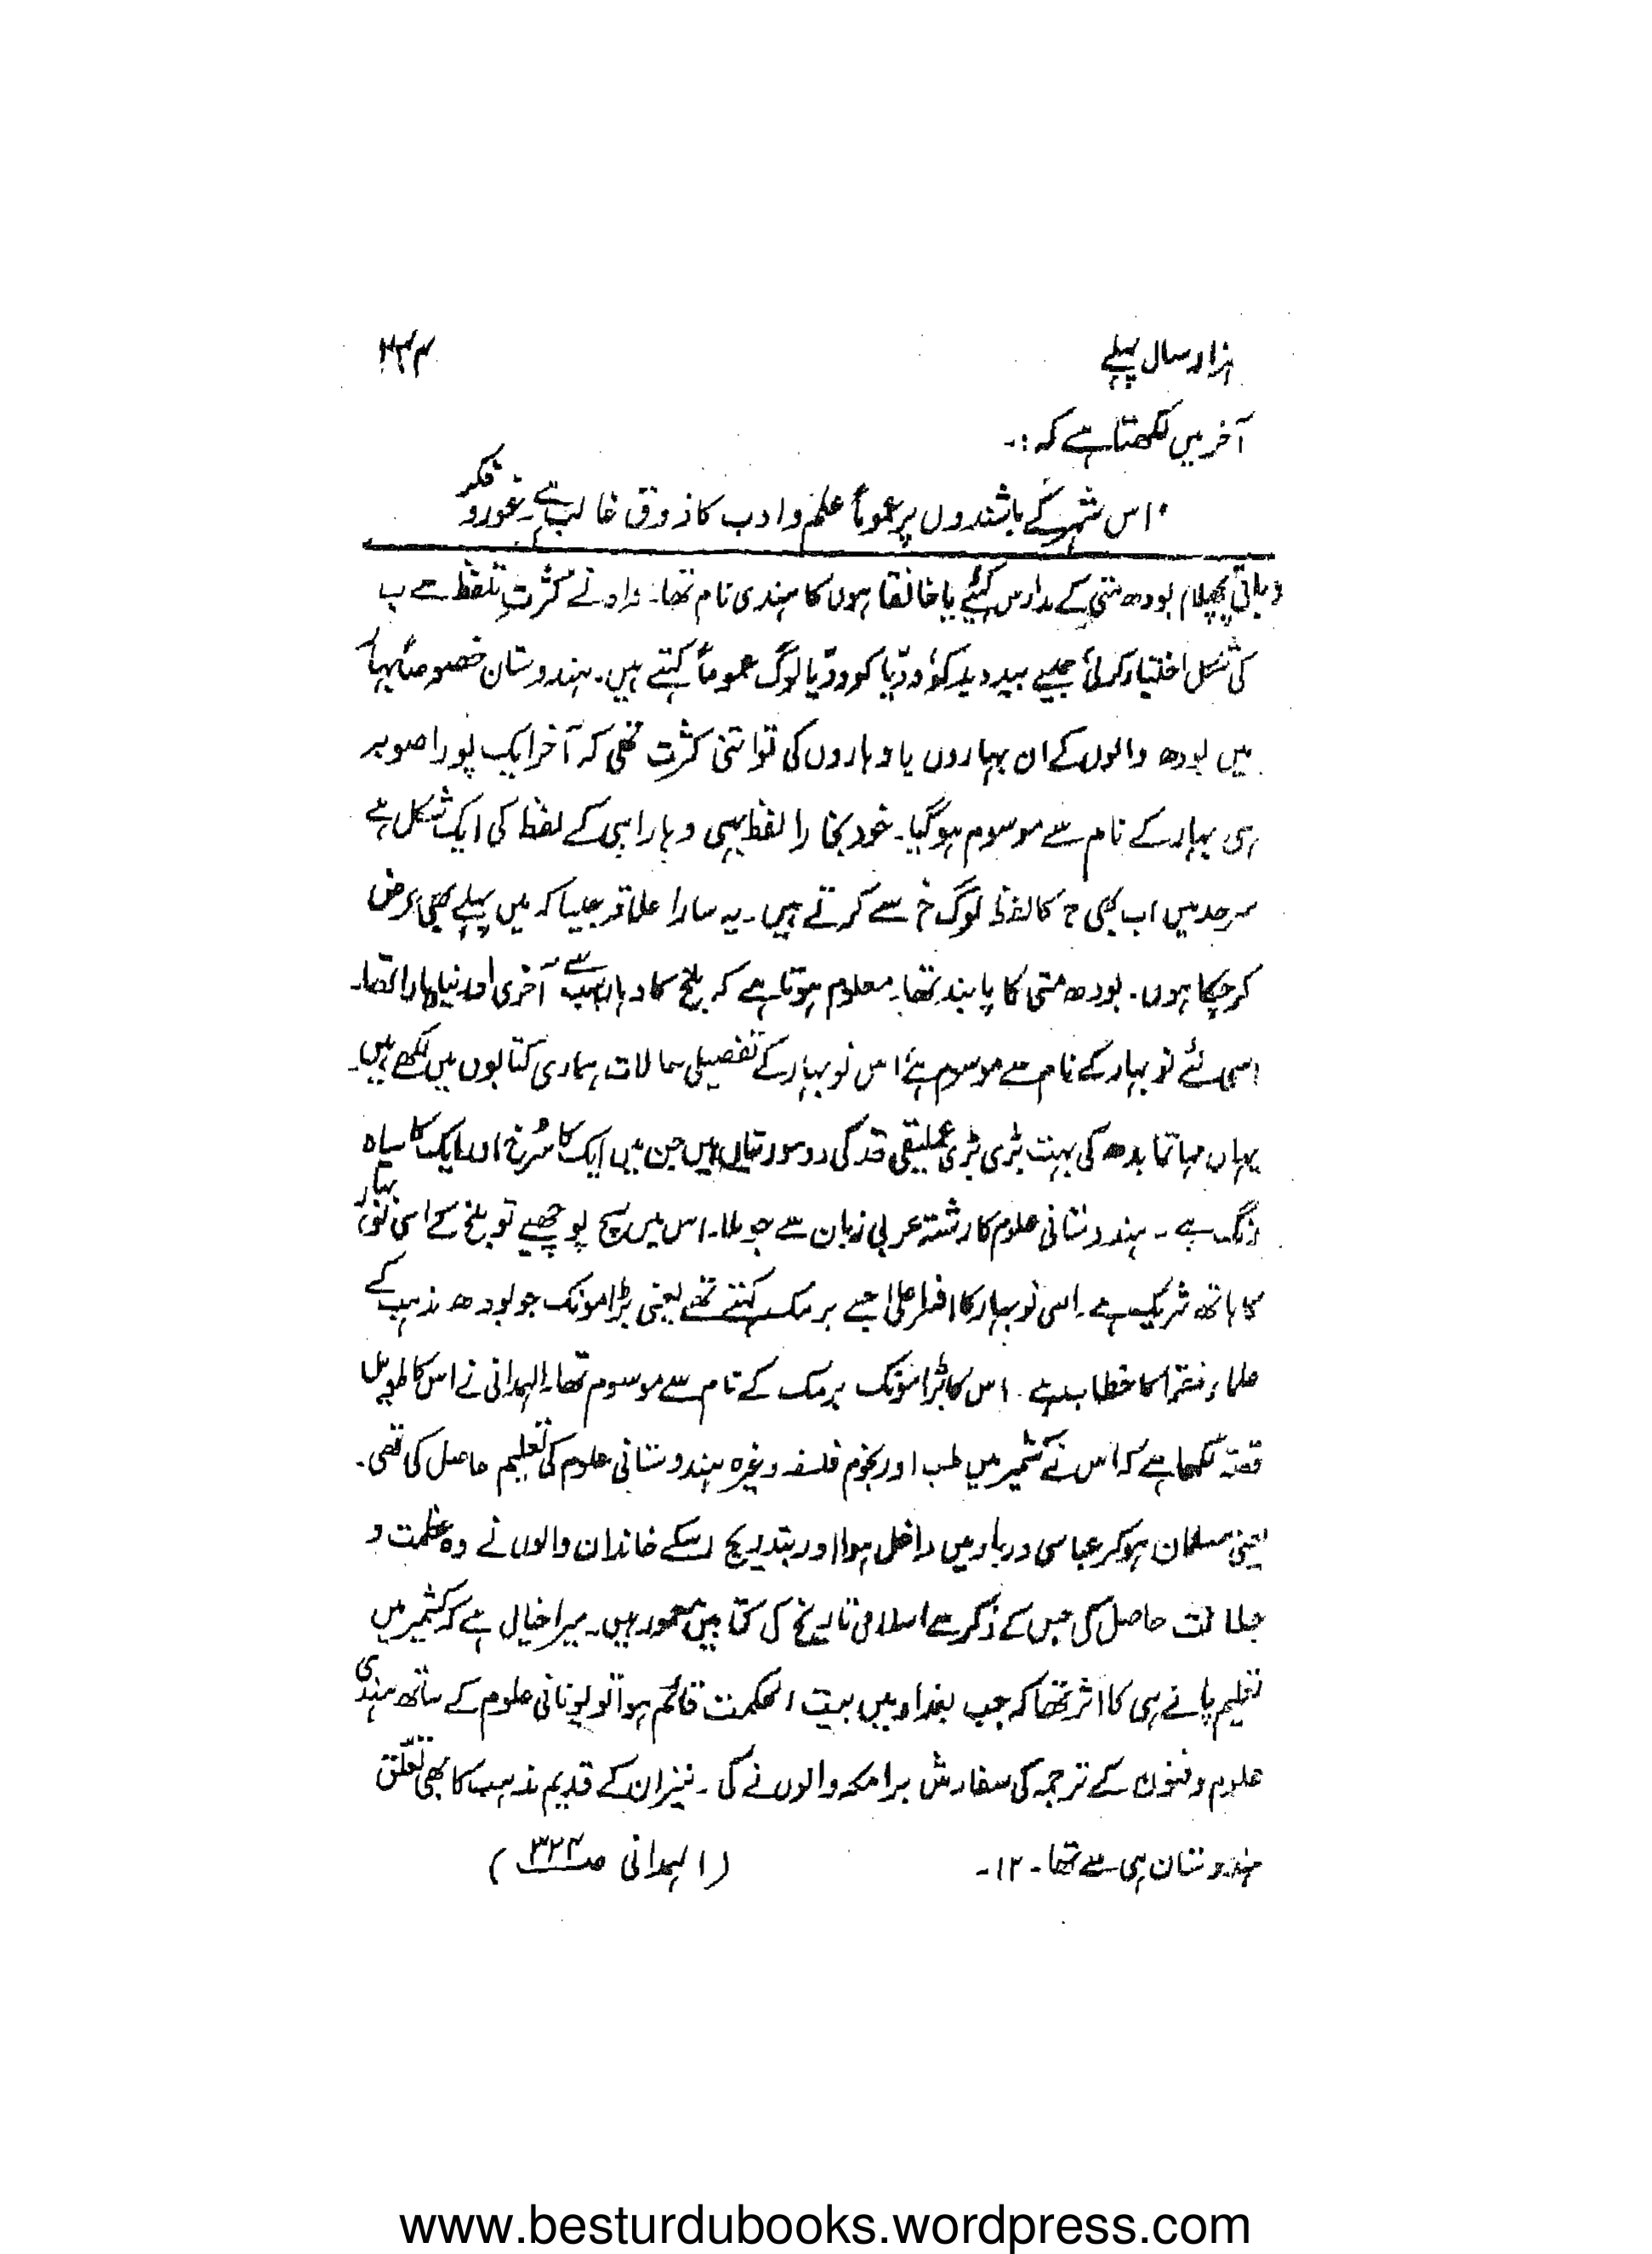 ہزار سال پہلے ۲۳۴
آخر میں لکھتا ہے کہ :۔
"اس شہر کے باشندوں پر عموماً علم و ادب کا ذوق غالب ہے۔ غور و فکر
(باقی پچھلا) بودھ متی کے مدارس کہئے یا خانقاہوں کا ہندی نام تھا۔ واو نے کثرتِ تلفظ سے ب
کی شکل اختیار کرلی جیسے بید وید کو، ودّیا کو ودّیا لوگ عموماً کہتے ہیں۔ ہندوستان خصوصاً بہار
میں بودھ والوں کے ان بہاروں یا وہاروں کی تو اتنی کثرت تھی کہ آخر ایک پورا صوبہ
ہی بہار کے نام سے موسوم ہوگیا۔ خود بخارا لفظ بھی وہارا ہی کے لفظ کی ایک شکل ہے
سرحد میں اب بھی ح کا لفظ لوگ خ سے کرتے ہیں۔ یہ سارا علاقہ جیسا کہ میں پہلے بھی عرض
کرچکا ہوں۔ بودھ متی کا پابند تھا۔ معلوم ہوتا ہے کہ بلخ کا وہار سب سے آخری اور نیا وہارا تھا۔
اسی لئے نو بہار کے نام سے موسوم ہے، اس نو بہار کے تفصیلی حالات ہماری کتابوں میں لکھے ہیں۔
یہاں مہاتما بدھ کی بہت بڑی بڑی عملیقی قد کی دو مورتیاں ہیں جن میں ایک کا سُرخ اور ایک کا سیاہ
رنگ ہے۔ ہندوستانی علوم کا رشتہ عربی زبان سے جو ملا۔ اس میں سچ پوچھیے تو بلخ کے اسی نو بہار
کا ہاتھ شریک ہے۔ اسی نو بہار کا افسر اعلیٰ جسے برمک کہتے تھے یعنی بڑا مونک جو بودھ مذہب کے
علماء و فقرا کا خطاب ہے۔ اس کا بڑا مونک برمک کے نام سے موسوم تھا۔ الہمدانی نے اس کا طویل
قصّہ لکھا ہے کہ اس نے کشمیر میں طب اور نجوم فلسفہ وغیرہ ہندوستانی علوم کی تعلیم حاصل کی تھی۔
یعنی مسلمان ہوکر عباسی دربار میں داخل ہوا اور بتدریج اسکے خاندان والوں نے وہ عظمت و
جلالت حاصل کی جس کے ذکر سے اسلامی تاریخ کی کتابیں معمور ہیں۔ میرا خیال ہے کہ کشمیر میں
تعلیم پانے ہی کا اثر تھا کہ جب بغداد میں بیت الحکمت قائم ہوا تو یونانی علوم کے ساتھ ہندی
علوم و فنون کے ترجمہ کی سفارش برامکہ والوں نے کی۔ نیز ان کے قدیم مذہب کا بھی تعلّق
ہندوستان ہی سے تھا۔ ۱۲۔ (الہمدانی صـ ۳۲۴)
www.besturdubooks.wordpress.com